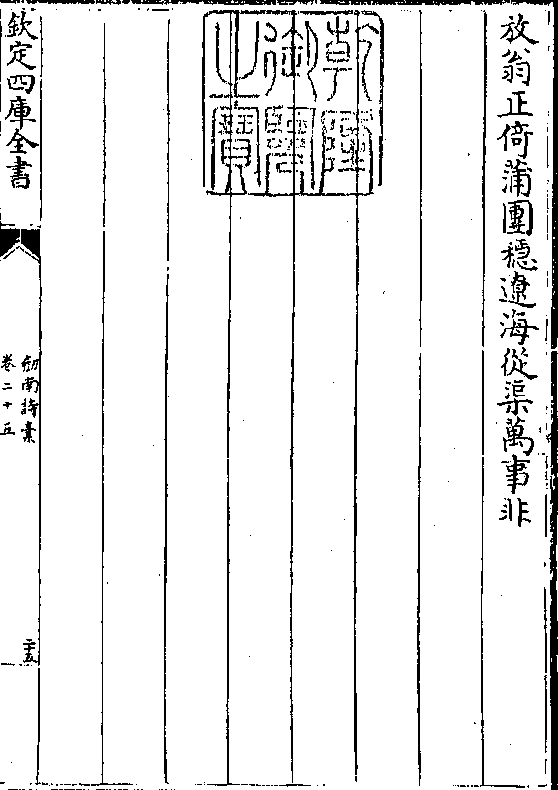 放翁正倚蒲團穩遼海從渠萬事非
乾隆御覽之寶
欽定四庫全書
劒南詩稾
卷二十五
二十五